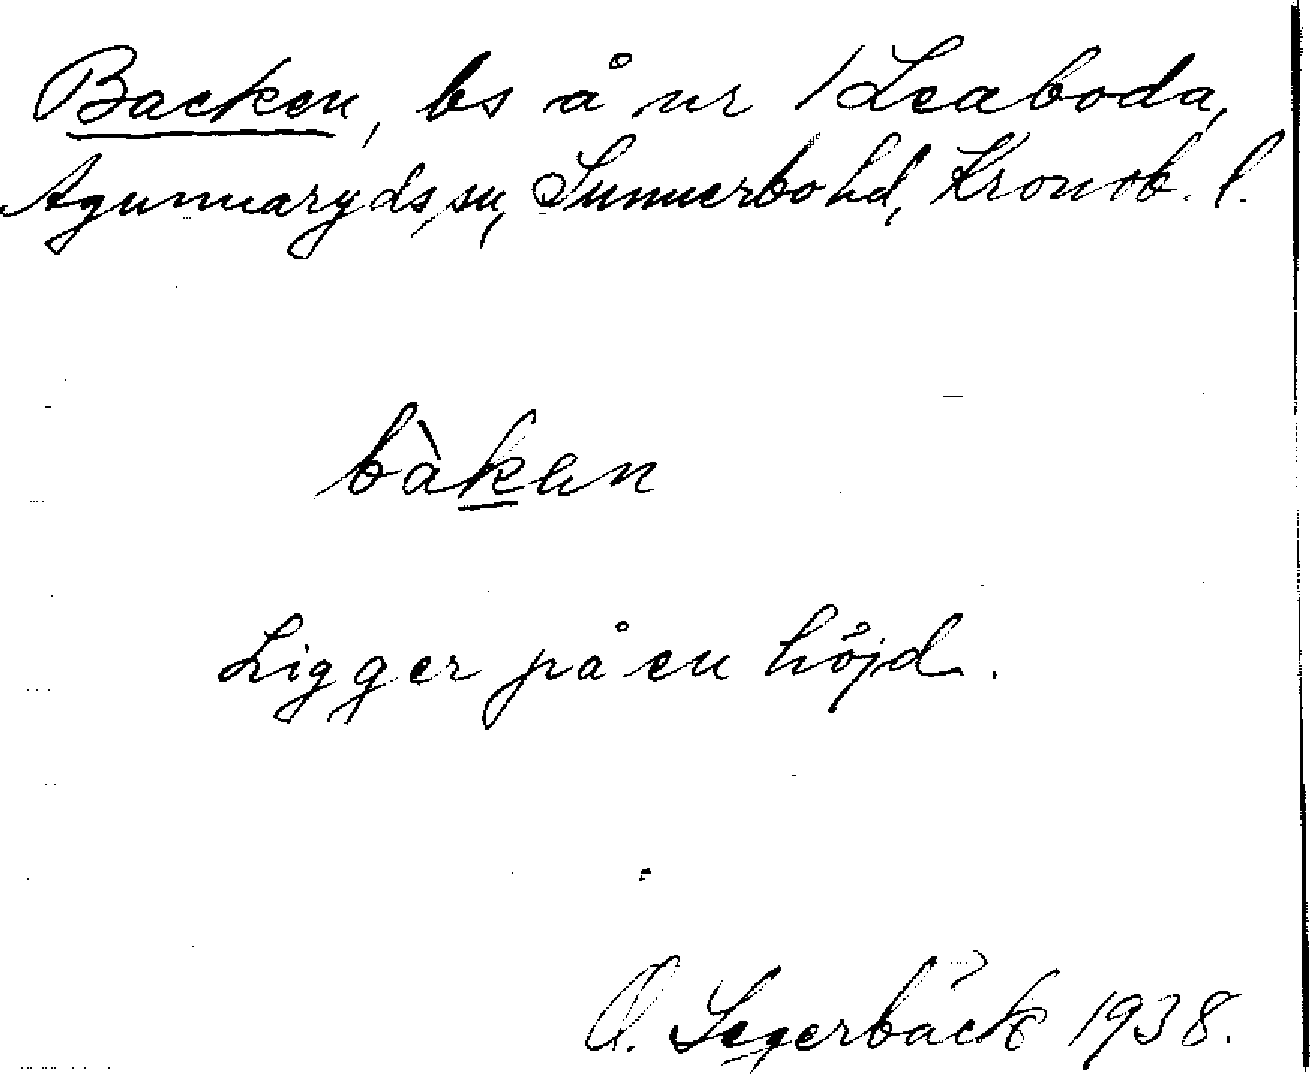 Backen, bs å nr 1 Leaboda,
Agunnaryds sn, Sunnerbo hd, Kronob. l.
bàkən
Ligger på en höjd.
O. Segerbäck 1938.